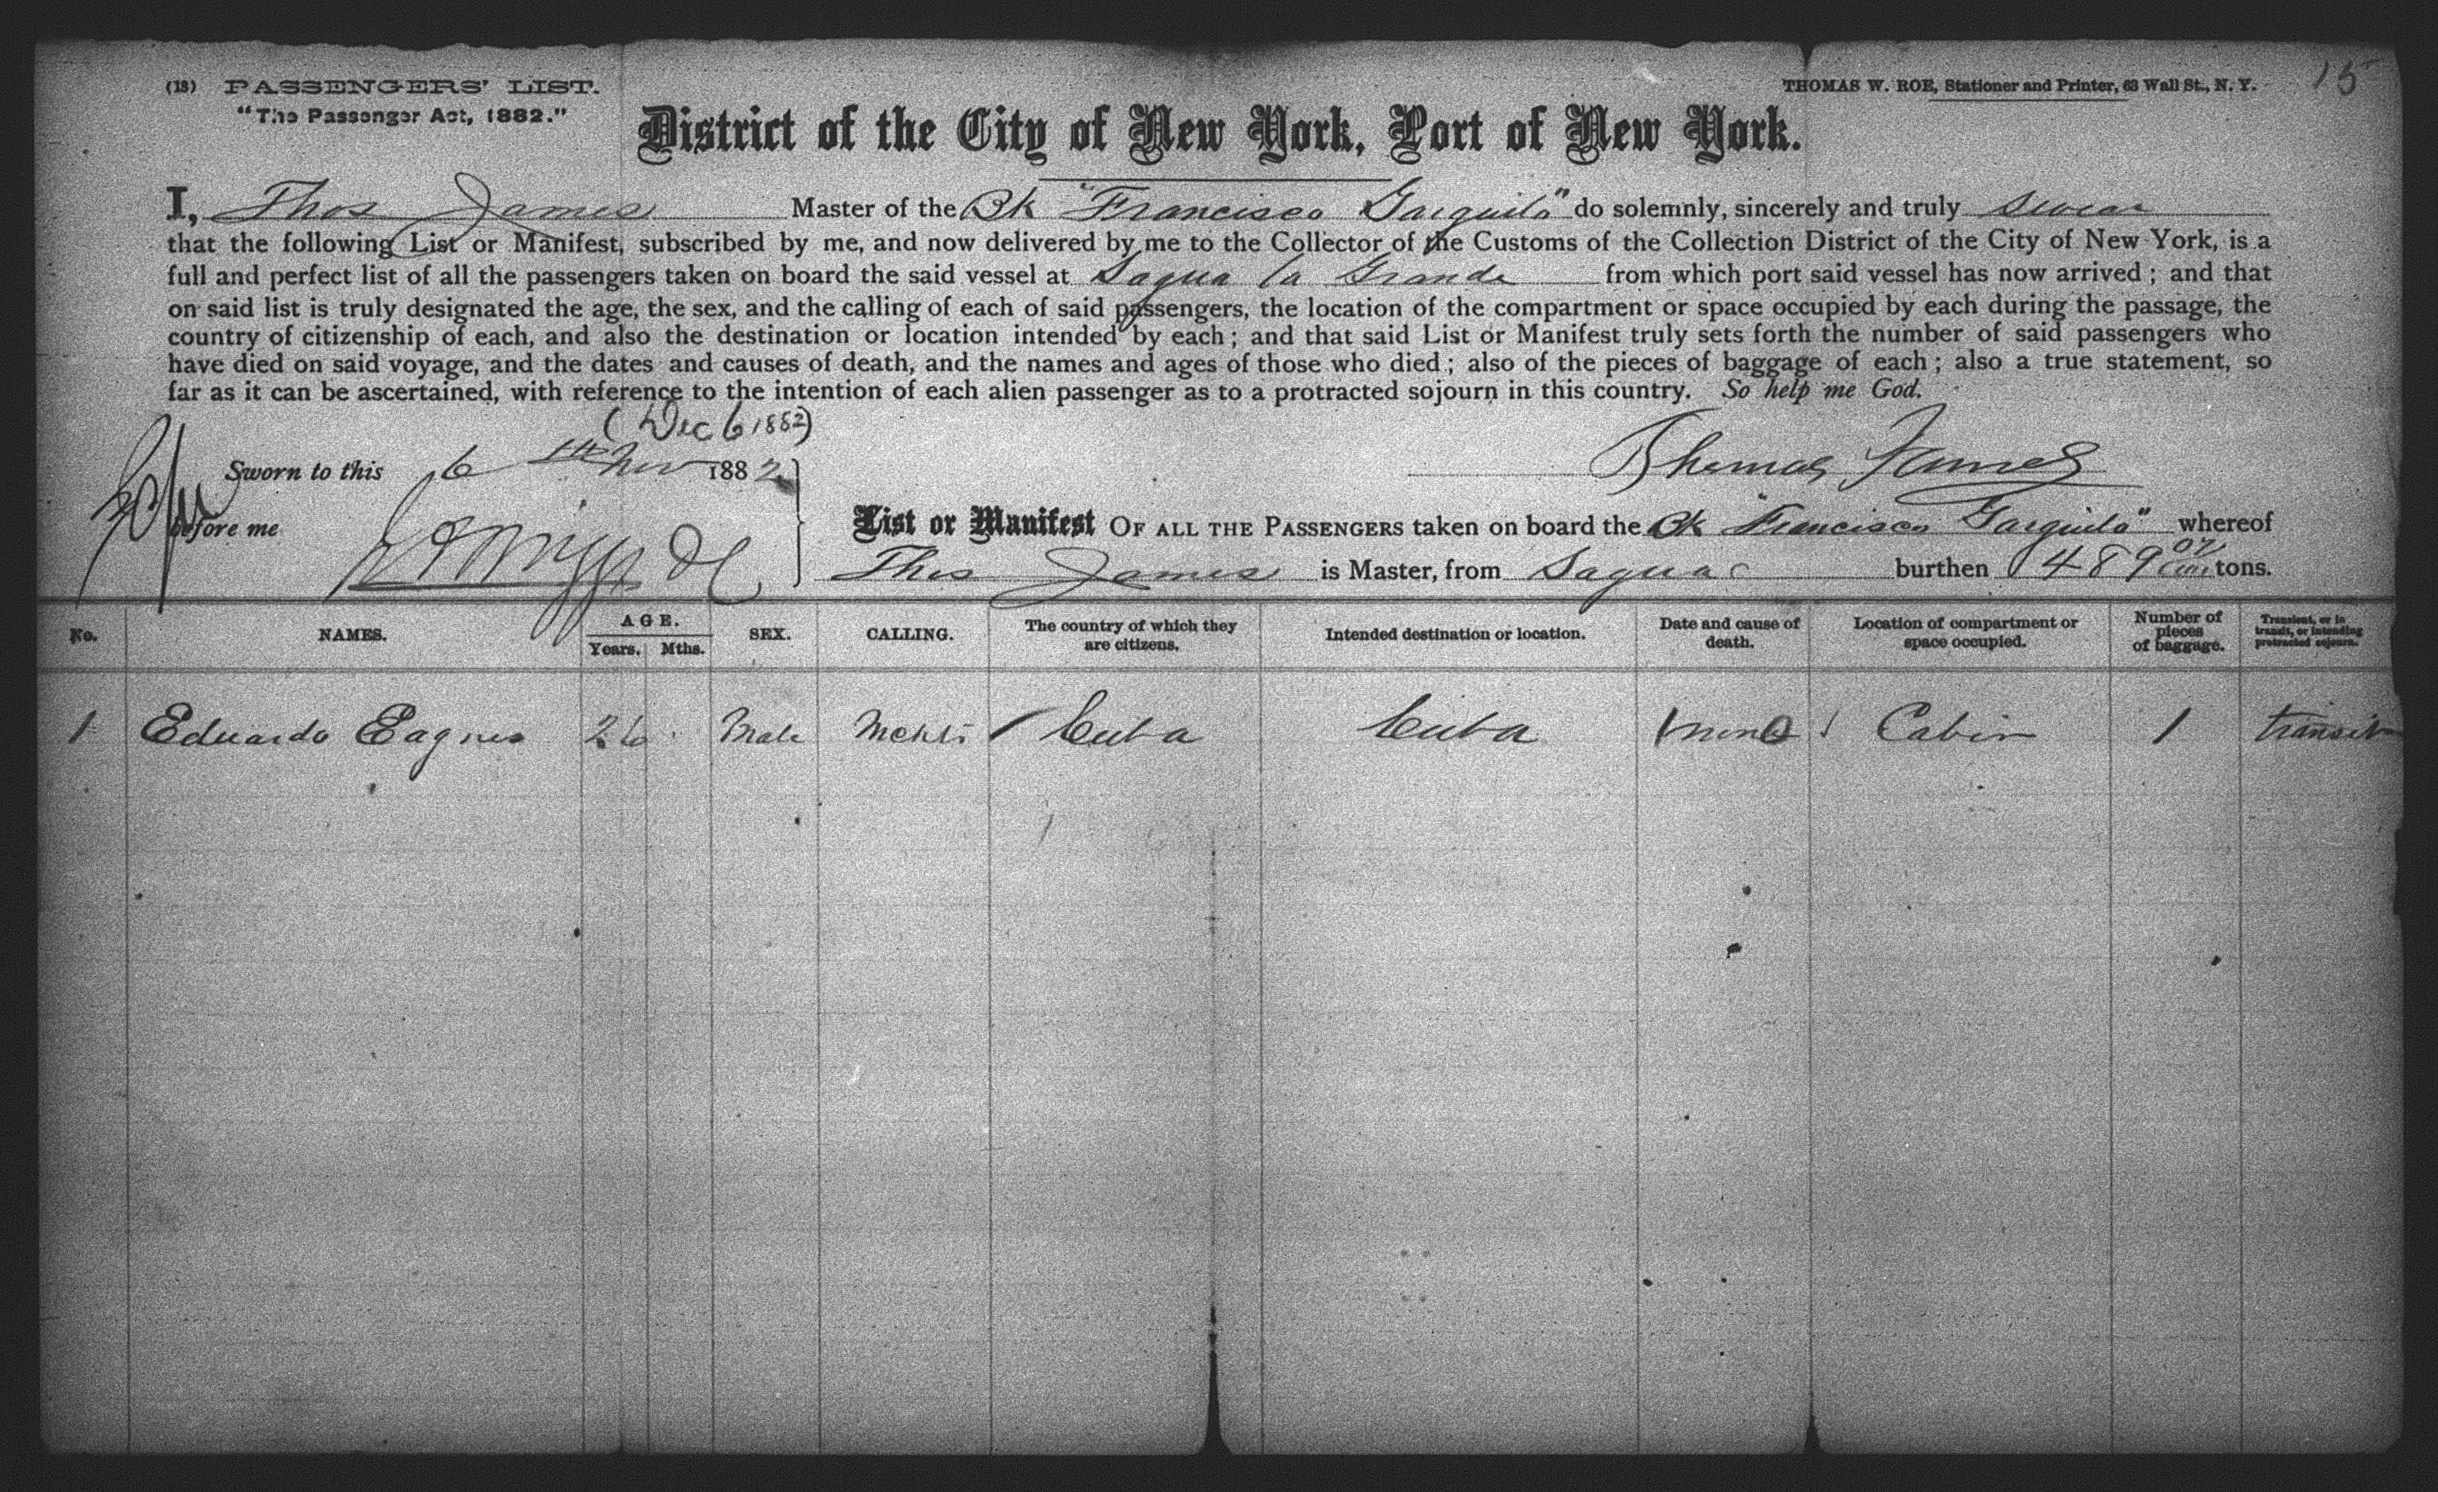 (13) PASSENGERS' LIST.
"The Passenger Act, 1882."
THOMAS W. ROE, Stationer and Printer, 63 Wall St., N. Y.
15
District of the City of New York, Port of New York.
I, Thos James Master of the Bk "Francisco Garguilo" do solemnly, sincerely and truly swear
that the following List or Manifest, subscribed by me, and now delivered by me to the Collector of the Customs of the Collection District of the City of New York, is a
full and perfect list of all the passengers taken on board the said vessel at Sagua la Grande from which port said vessel has now arrived; and that
on said list is truly designated the age, the sex, and the calling of each of said passengers, the location of the compartment or space occupied by each during the passage, the
country of citizenship of each, and also the destination or location intended by each; and that said List or Manifest truly sets forth the number of said passengers who
have died on said voyage, and the dates and causes of death, and the names and ages of those who died; also of the pieces of baggage of each; also a true statement, so
far as it can be ascertained, with reference to the intention of each alien passenger as to a protracted sojourn in this country. So help me God.
(Dec 6 1882)
Sworn to this 6th Nov 1882
Thomas James
before me
List or Manifest OF ALL THE PASSENGERS taken on board the Bk "Francisco Garguilo" whereof
Thos James is Master, from Sagua burthen 489 tons.
No. NAMES. AGE. Years. Mths. SEX. CALLING. The country of which they are citizens. Intended destination or location. Date and cause of death. Location of compartment or space occupied. Number of pieces of baggage. Transient, or in transit, or intending protracted sojourn.
1 Eduardo Eagnes 26 Male Mcht Cuba Cuba none Cabin 1 transit